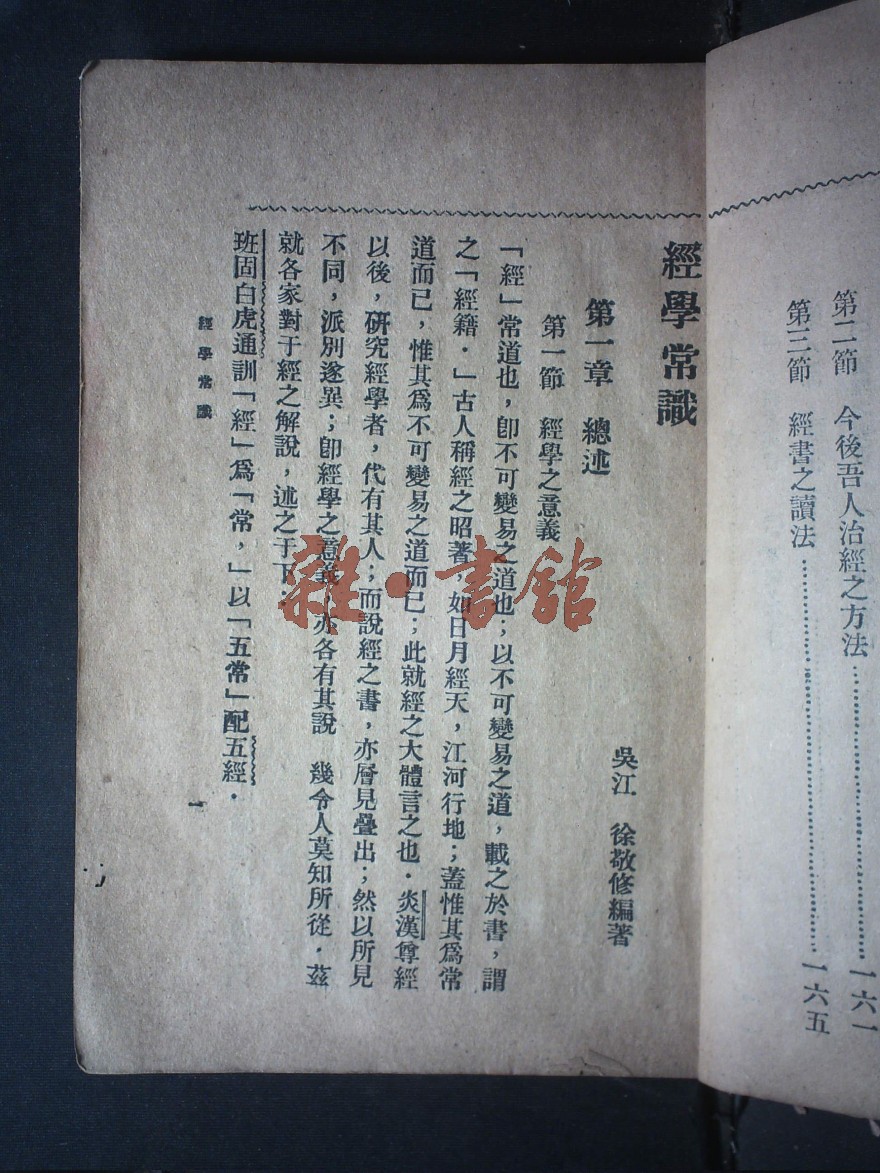 第二節　今後吾人治經之方法……………………一六一
第三節　經書之讀法……………………一六五
經學常識
吳江　徐敬修編著
第一章　總述
第一節　經學之意義
「經」常道也，卽不可變易之道也；以不可變易之道，載之於書，謂
之「經籍．」古人稱經之昭著，如日月經天，江河行地；蓋惟其爲常
道而已，惟其爲不可變易之道而已；此就經之大體言之也．炎漢尊經
以後，研究經學者，代有其人；而說經之書，亦層見疊出；然以所見
不同，派別遂異；卽經學之意義，亦各有其說　幾令人莫知所從．茲
就各家對于經之解說，述之于下：
班固白虎通訓「經」爲「常，」以「五常」配五經．
經學常識
一
雜·書館